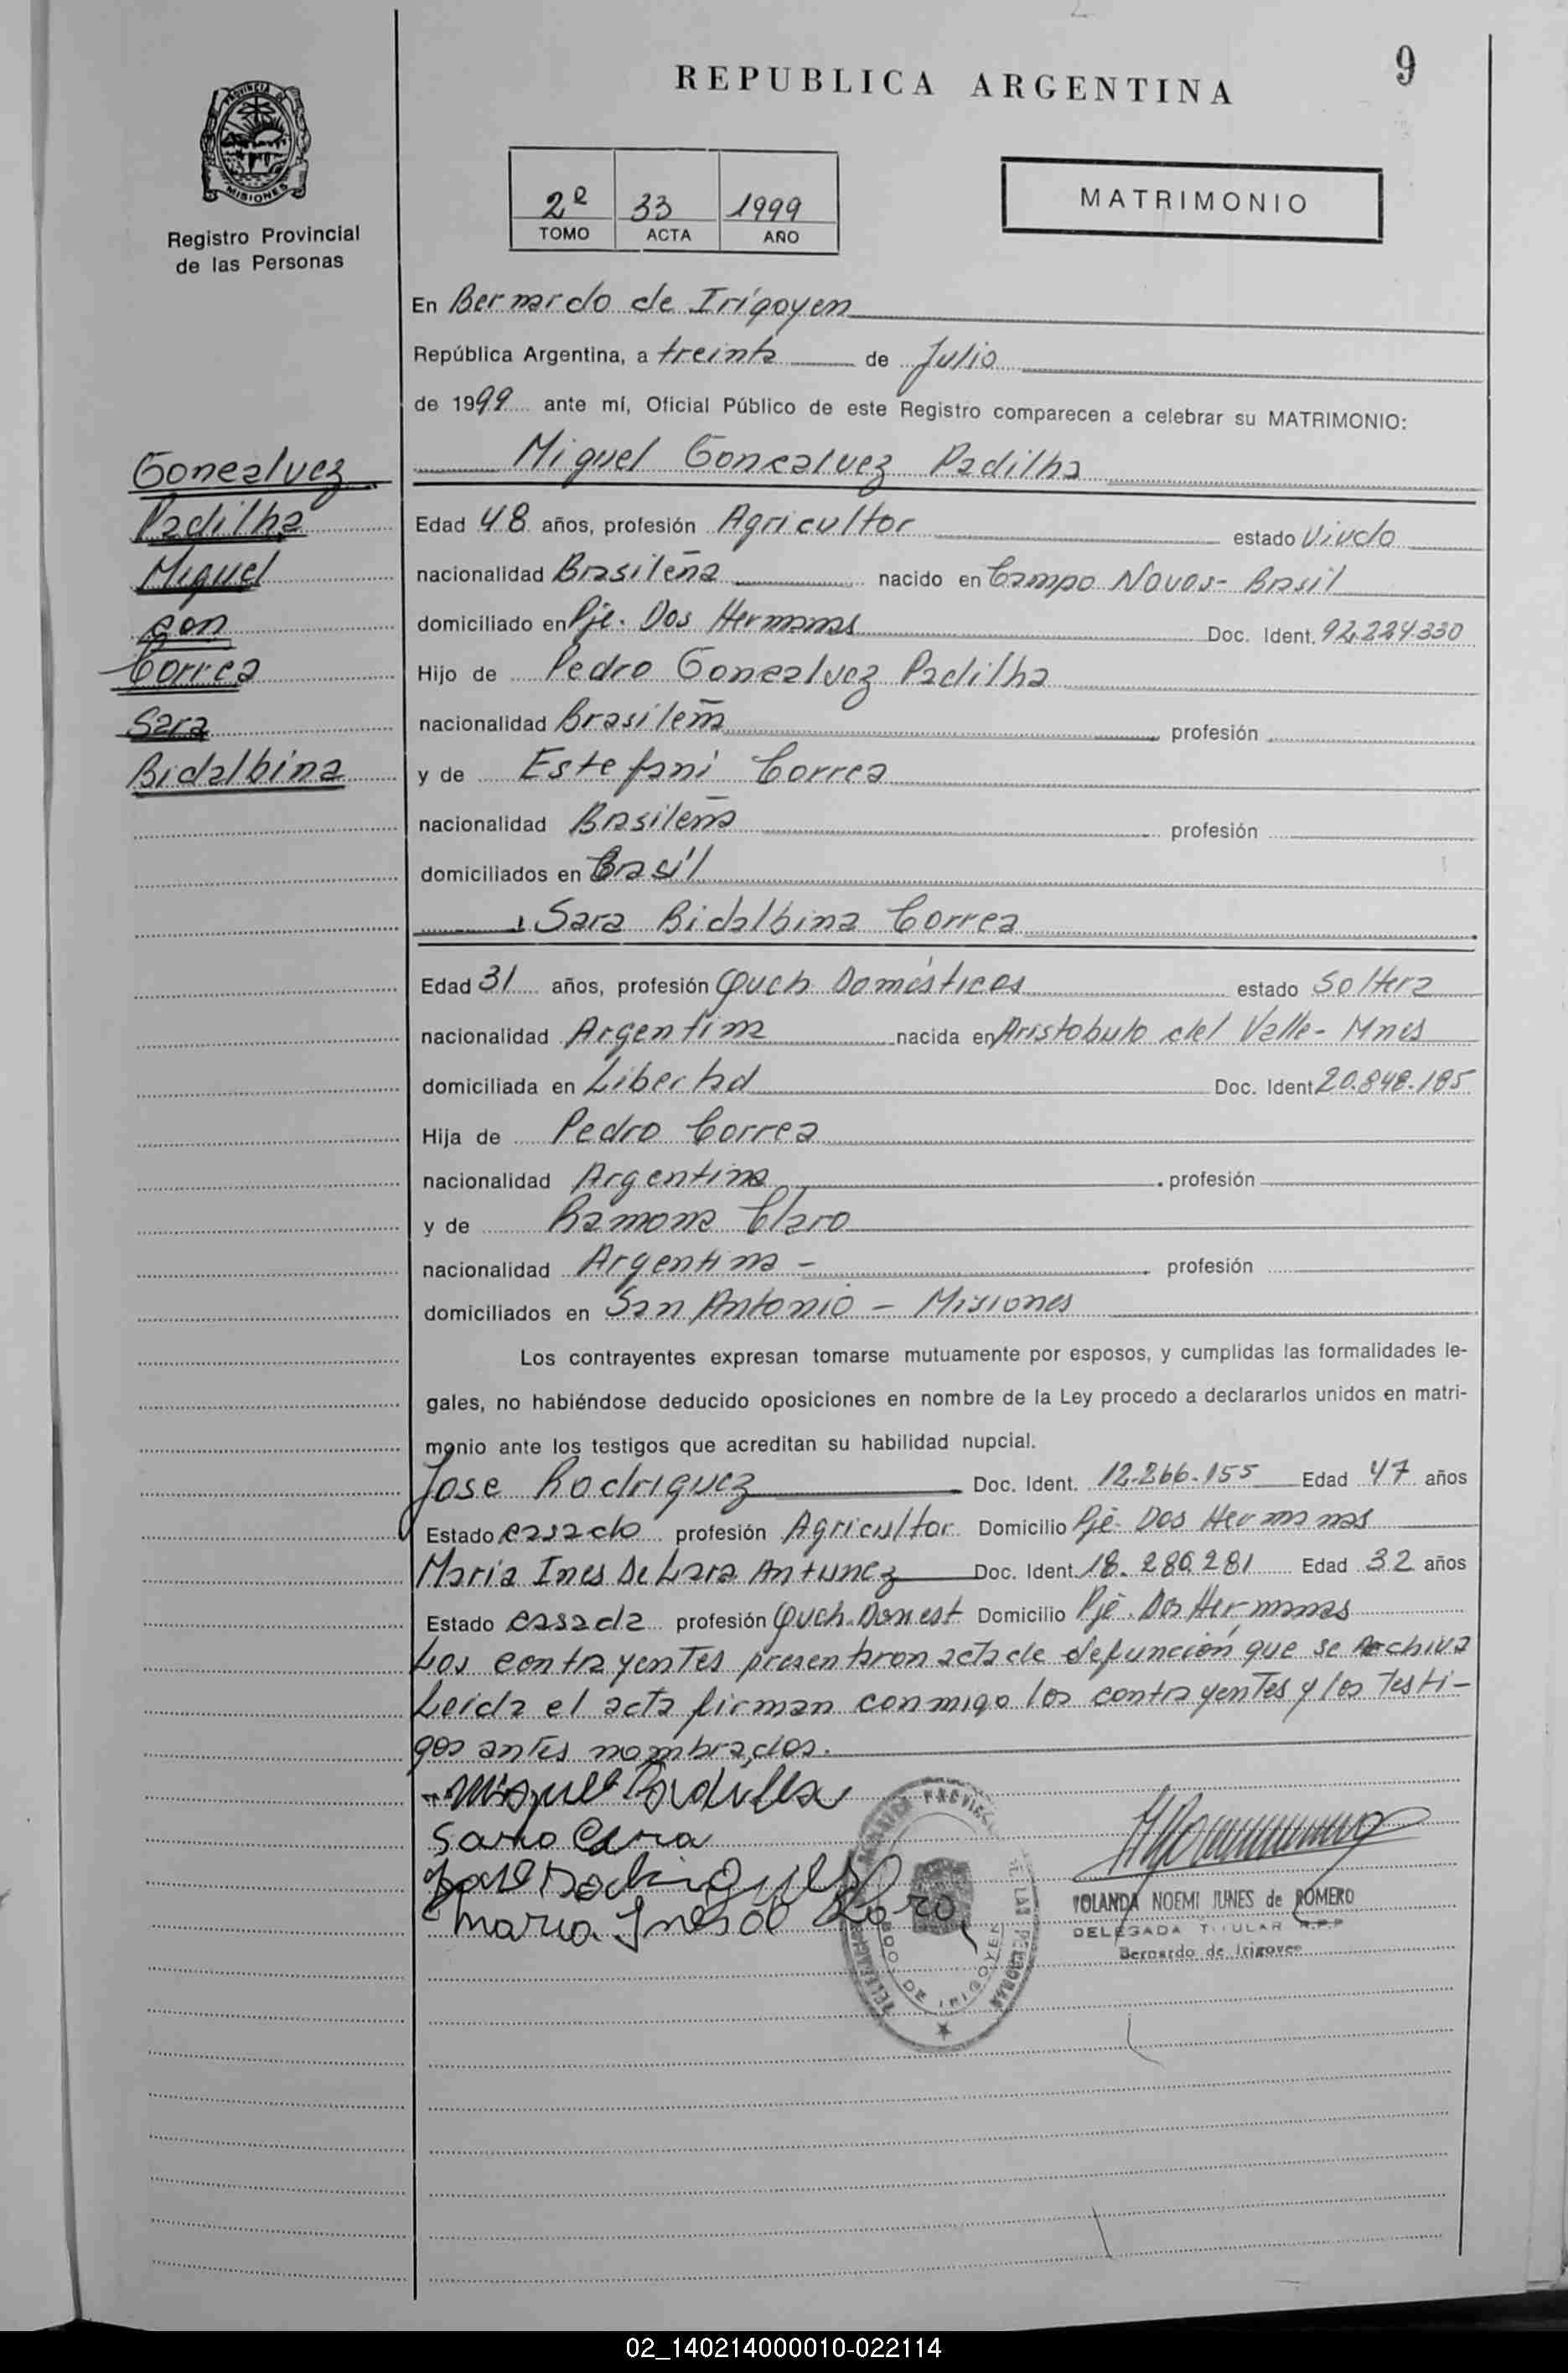 9
REPUBLICA ARGENTINA
PROVINCIA DE
MISIONES
Registro Provincial
de las Personas
2º 33 1999
TOMO ACTA AÑO
MATRIMONIO
En Bernardo de Irigoyen
República Argentina, a treinta de Julio
de 1999 ante mí, Oficial Público de este Registro comparecen a celebrar su MATRIMONIO:
Miguel Goncalvez Padilha
Goncalvez
Padilha
Miguel
con
Correa
Sara
Bidalbina
Edad 48 años, profesión Agricultor estado Viudo
nacionalidad Brasileña nacido en Campo Novos - Brasil
domiciliado en Pje. Dos Hermanas Doc. Ident. 92.224.330
Hijo de Pedro Goncalvez Padilha
nacionalidad Brasileña profesión
y de Estefani Correa
nacionalidad Brasileña profesión
domiciliados en Brasil
Sara Bidalbina Correa
Edad 31 años, profesión Quch Domésticos estado Soltera
nacionalidad Argentina nacida en Aristobulo del Valle - Mnes
domiciliada en Libertad Doc. Ident 20.848.185
Hija de Pedro Correa
nacionalidad Argentina profesión
y de Ramona Claro
nacionalidad Argentina - profesión
domiciliados en San Antonio - Misiones
Los contrayentes expresan tomarse mutuamente por esposos, y cumplidas las formalidades le-
gales, no habiéndose deducido oposiciones en nombre de la Ley procedo a declararlos unidos en matri-
monio ante los testigos que acreditan su habilidad nupcial.
Jose Rodriguez Doc. Ident. 12.266.155 Edad 47 años
Estado casado profesión Agricultor Domicilio Pje Dos Hermanas
Maria Ines De Lara Antunez Doc. Ident. 18.280.281 Edad 32 años
Estado casada profesión Quch. Domest Domicilio Pje. Dos Hermanas
Los contrayentes presentaron acta de defunción que se Archiva
Leida el acta firman conmigo los contrayentes y los testi-
gos antes nombrados.
Miguel Padilha
Maria Ines de Lara
BDO DE IRIGOYEN
YOLANDA NOEMI JUNES de ROMERO
DELEGADA TITULAR R.P.P
Bernardo de Irigoyen
02_140214000010-022114